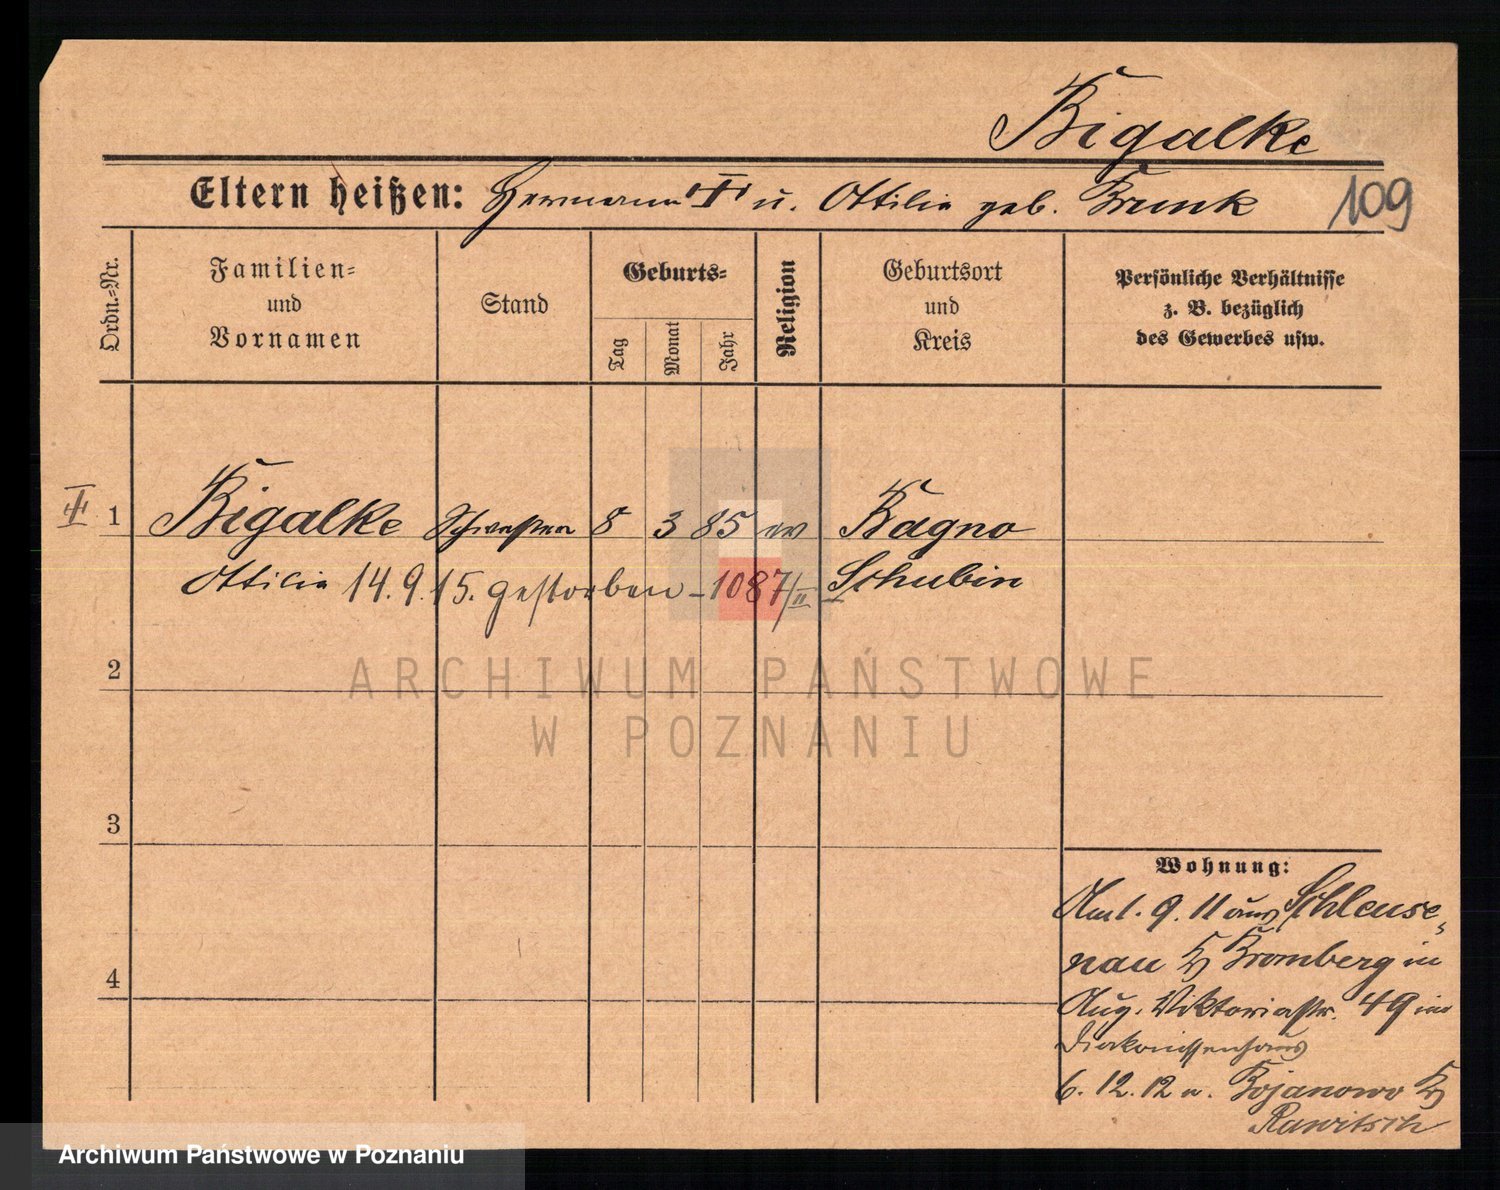 Bigalke
Eltern heißen: Hermann u. Ottilie geb. Brunk
109
Ordn.-Nr.
Familien-
und
Vornamen
Stand
Geburts-
Tag
Monat
Jahr
Religion
Geburtsort
und
Kreis
Persönliche Verhältnisse
z. B. bezüglich
des Gewerbes usw.
1 Bigalke Schwester 8 3 85 ev Bagno
Ottilie 14.9.15. gestorben - 1087/II Schubin
2
ARCHIWUM PAŃSTWOWE
W POZNANIU
3
4
Wohnung:
Am 1. 9. 11 aus Schleuse-
nau Kr Bromberg in
Aug. Viktoriastr. 49 im
Diakonissenhaus
6. 12. 12 n. Bojanowo Kr
Rawitsch
Archiwum Państwowe w Poznaniu